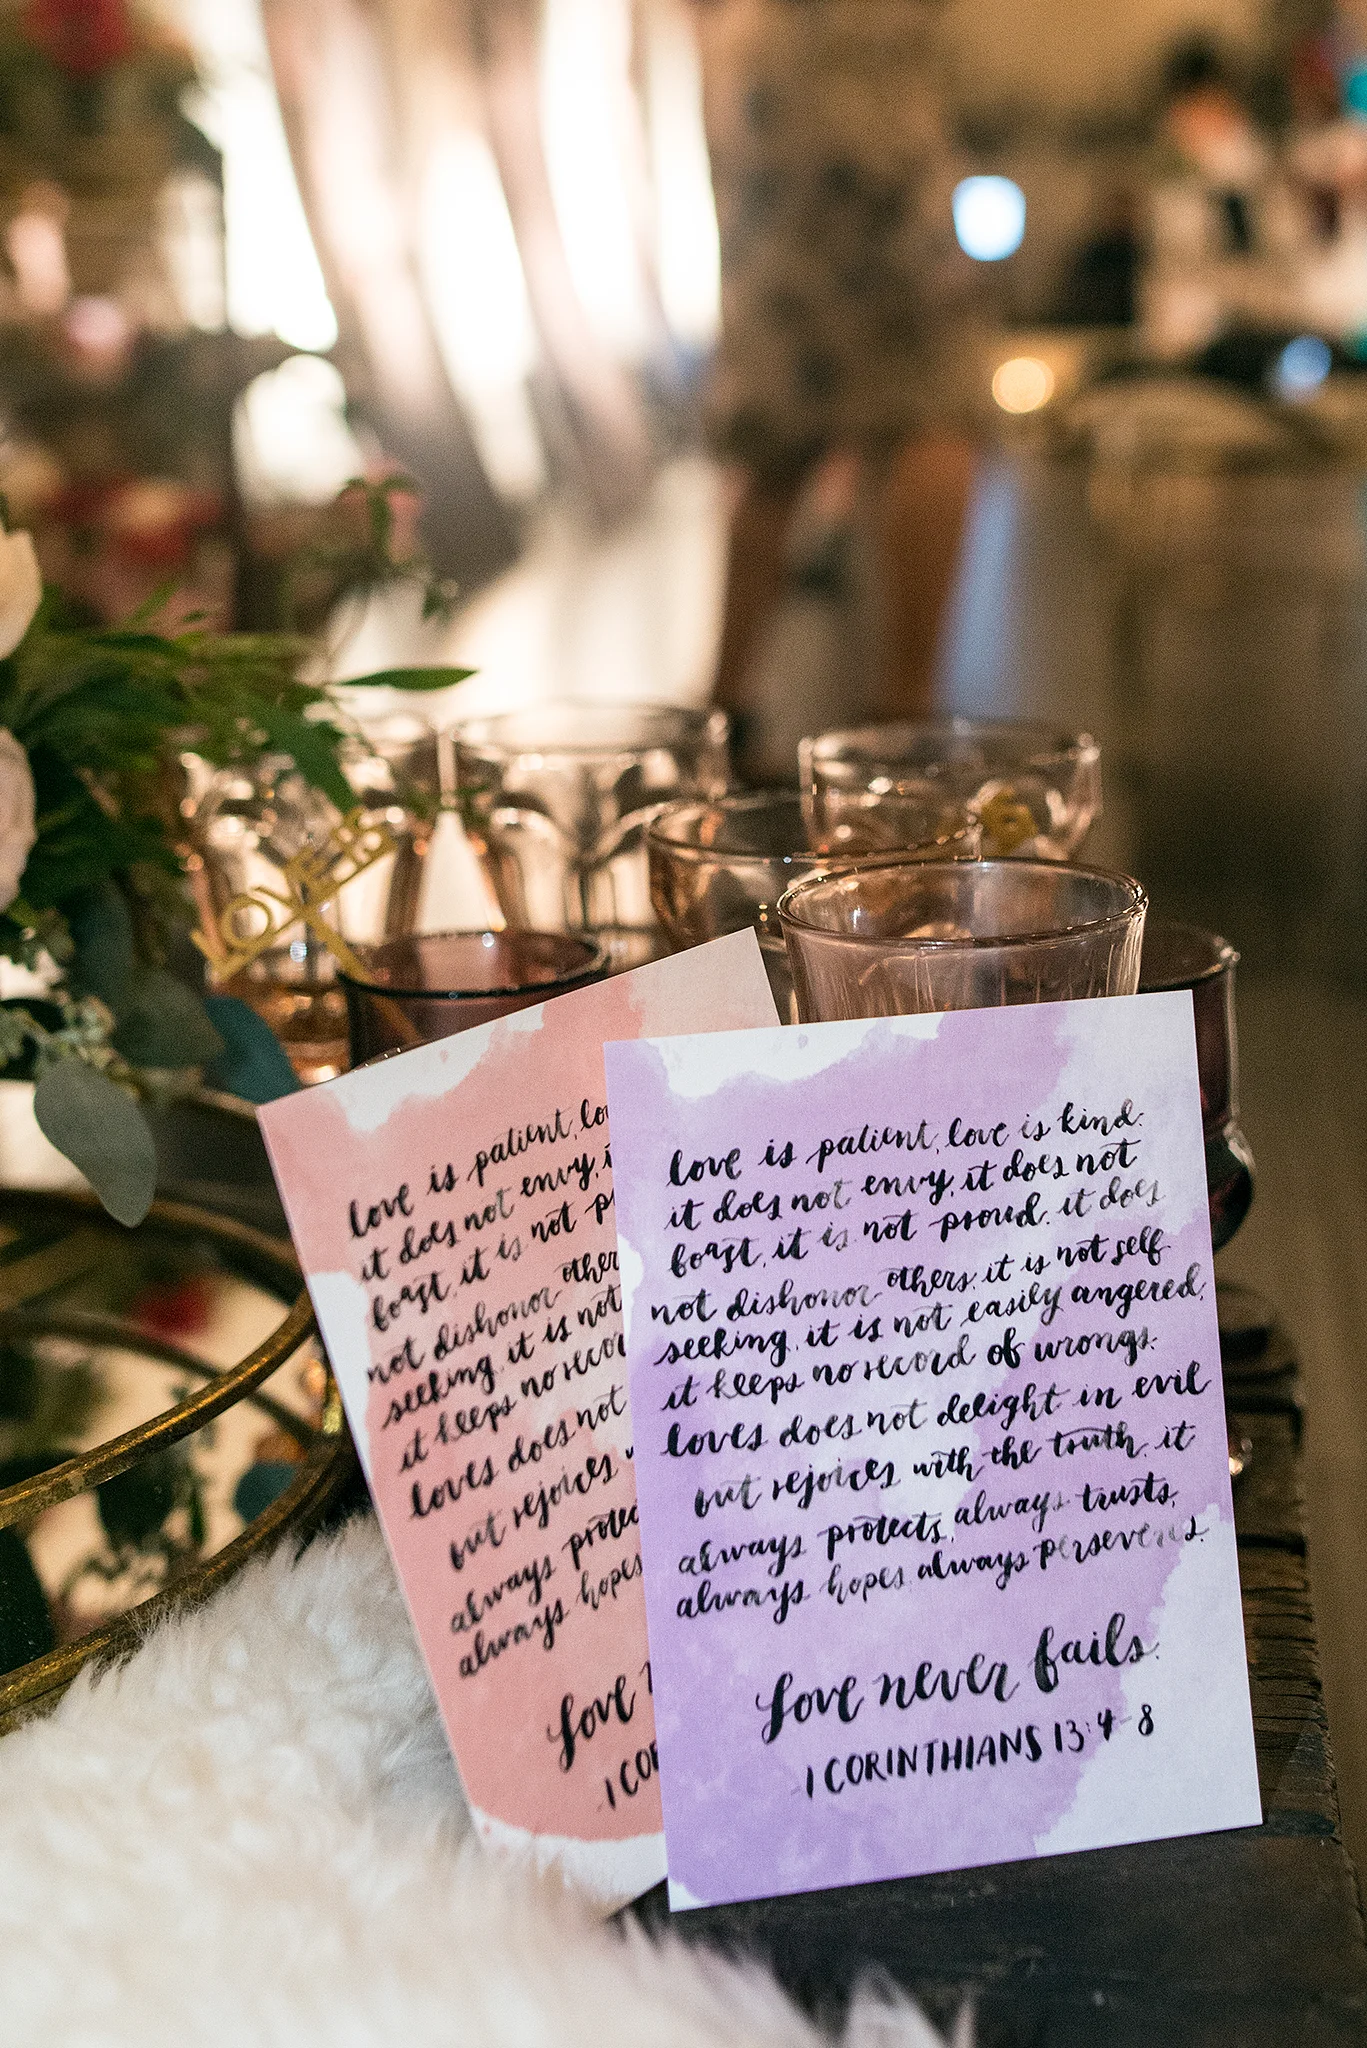 LOVED
love is patient, lo
it does not envy, i
boast, it is not p
not dishonor other
seeking, it is not
it keeps no recor
loves does not
but rejoices w
always protec
always hopes
Love n
1 COR
love is patient, love is kind.
it does not envy, it does not
boast, it is not proud. it does
not dishonor others, it is not self
seeking, it is not easily angered,
it keeps no record of wrongs.
loves does not delight in evil
but rejoices with the truth. it
always protects, always trusts,
always hopes, always perseveres.
Love never fails.
1 CORINTHIANS 13:4-8